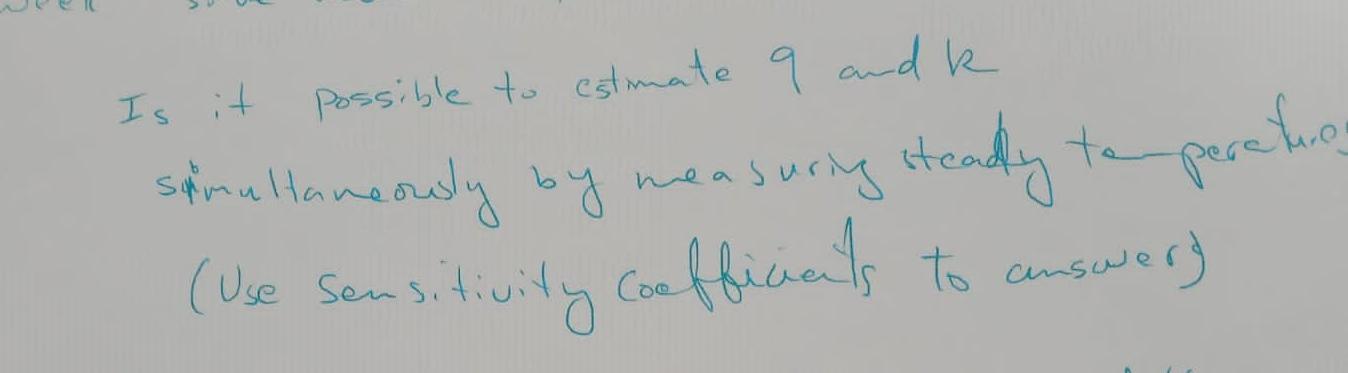 Is it possible to estmate q and k
simultaneously by measuring steady temperatures
(Use sensitivity coefficients to answer)